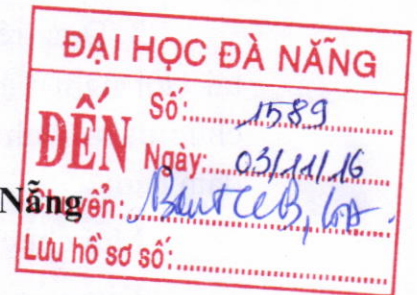 ĐẠI HỌC ĐÀ NẴNG
ĐẾN
Số: 1589
Ngày: 03/11/16
Nẵng
Chuyển:
Lưu hồ sơ số: